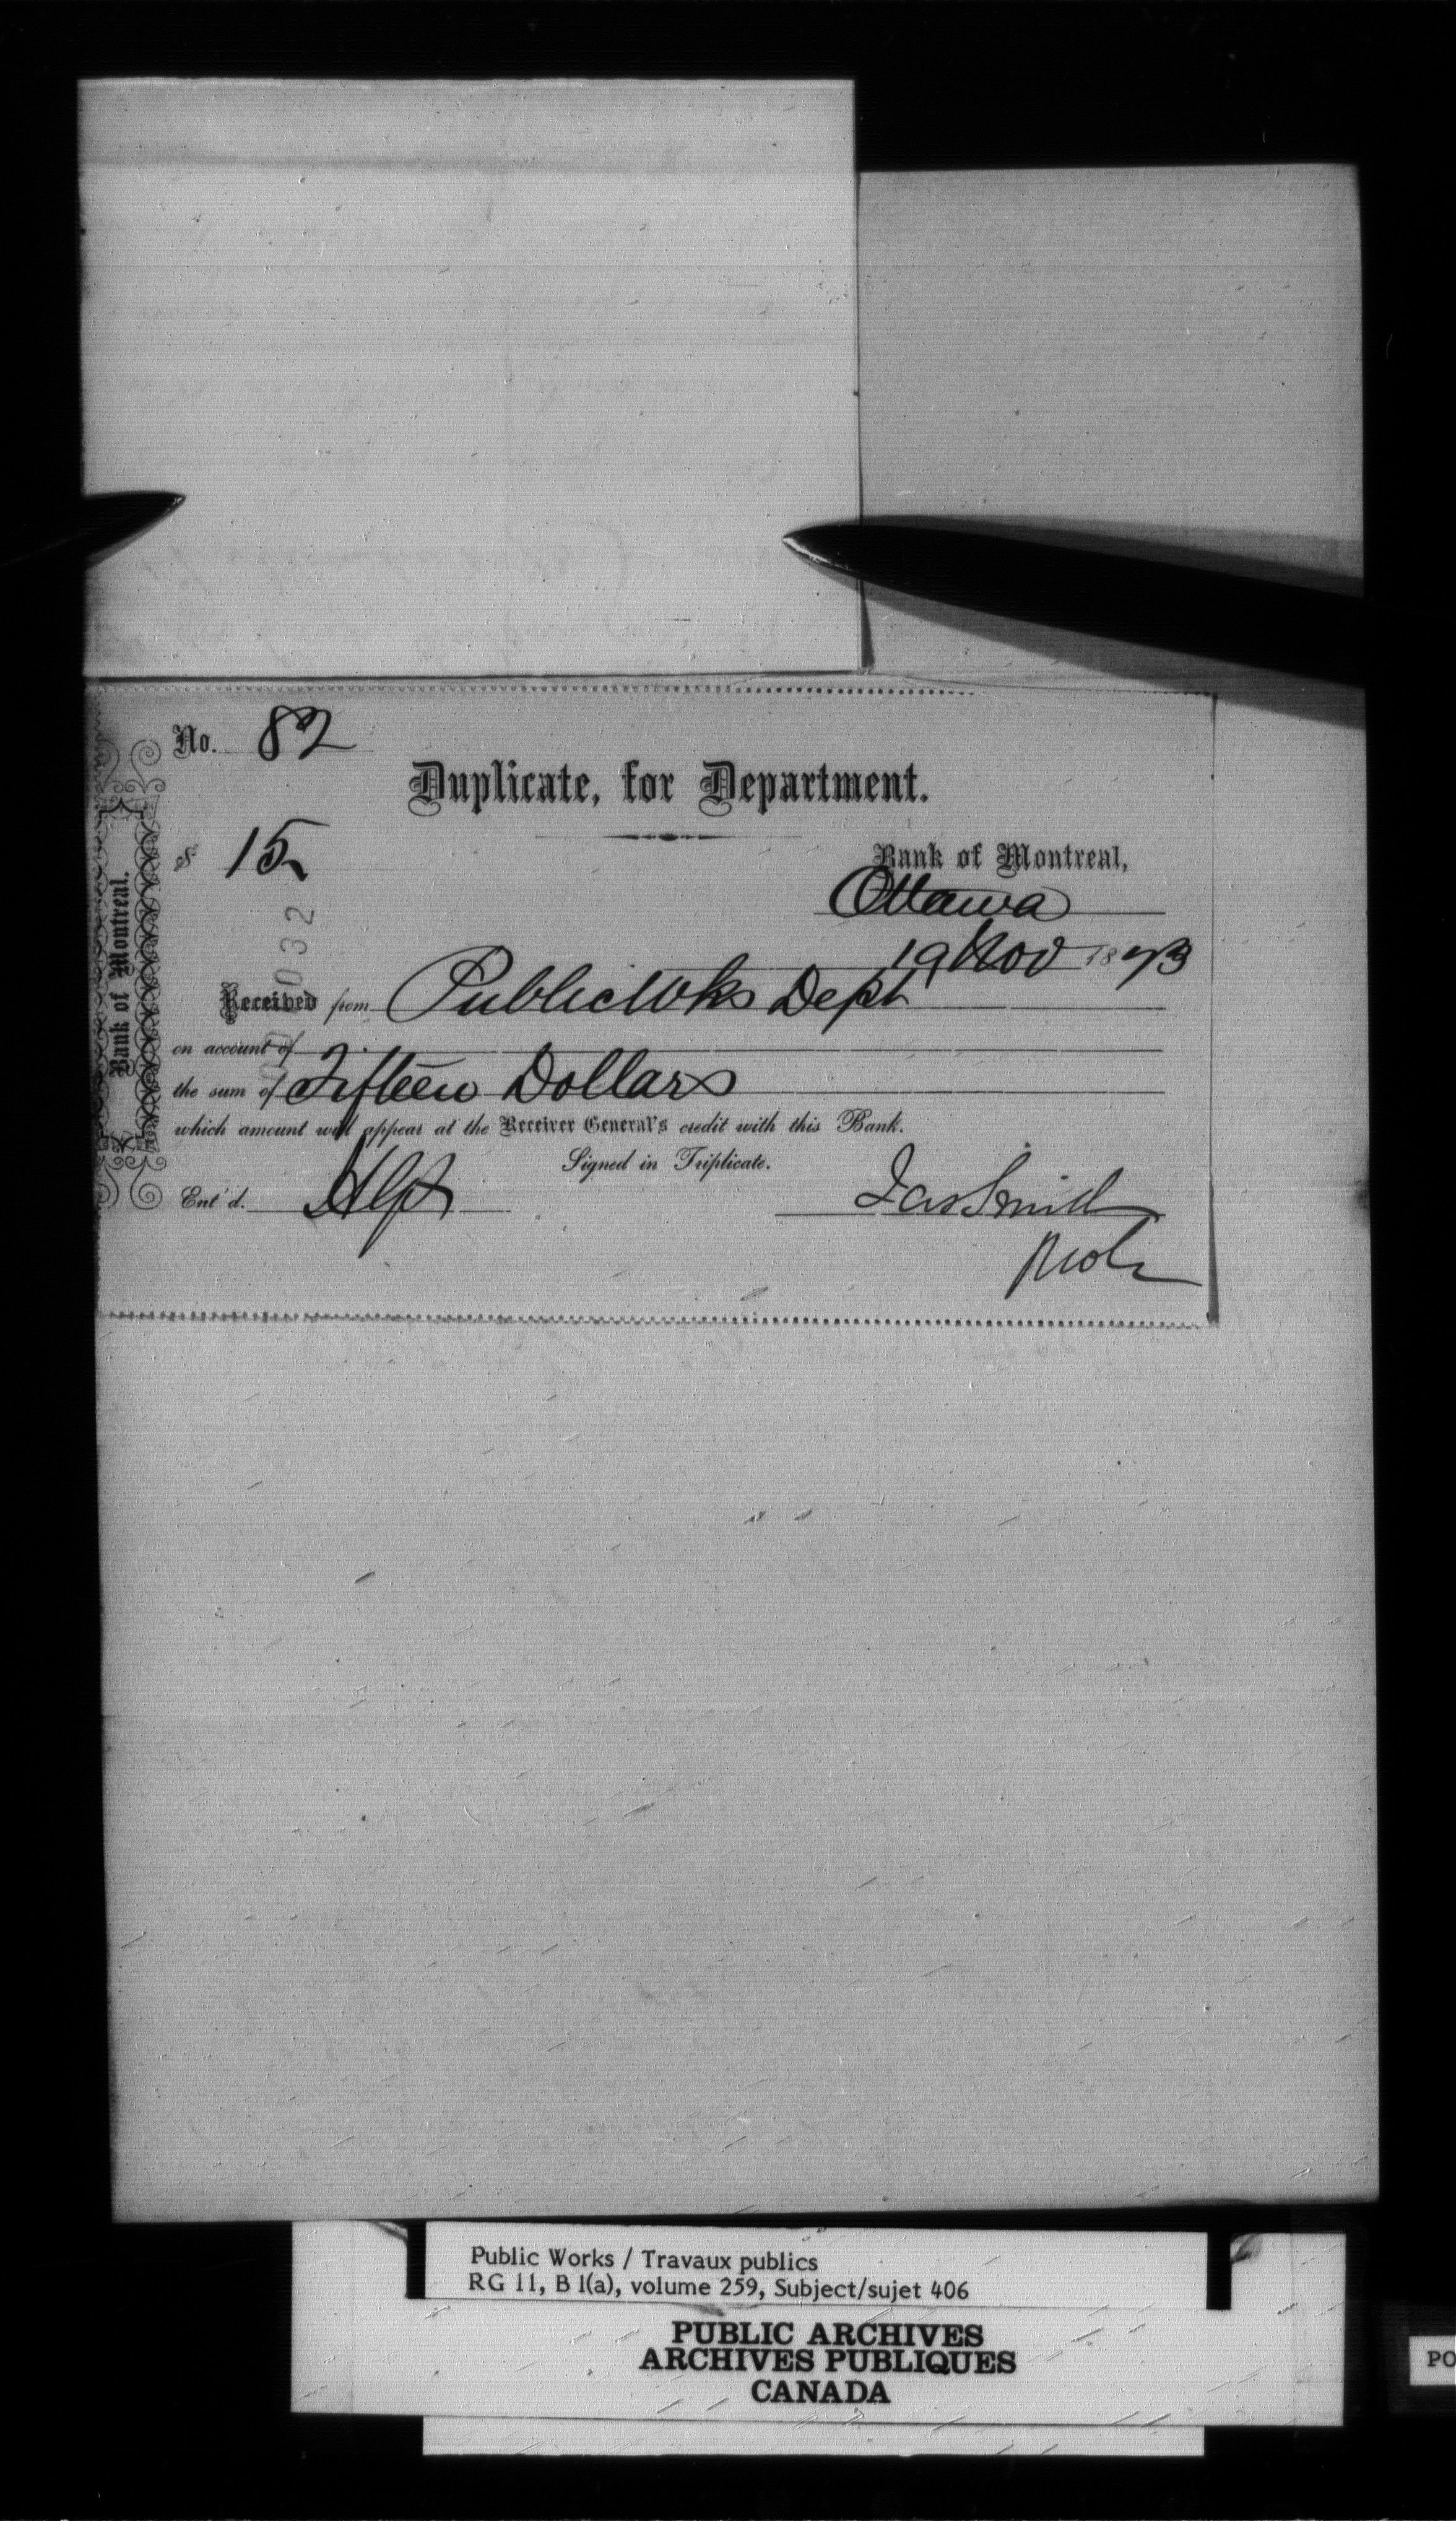 No. 82
Duplicate, for Department.
$ 15
Bank of Montreal,
Ottawa
19 Nov 1873
Received from Public Wks Dept
on account of
the sum of Fifteen Dollars
which amount will appear at the Receiver General's credit with this Bank.
Signed in Triplicate.
Ent'd. Jas Smith
Bank of Montreal.
Public Works / Travaux publics
RG 11, B 1(a), volume 259, Subject/sujet 406
PUBLIC ARCHIVES
ARCHIVES PUBLIQUES
CANADA
PO